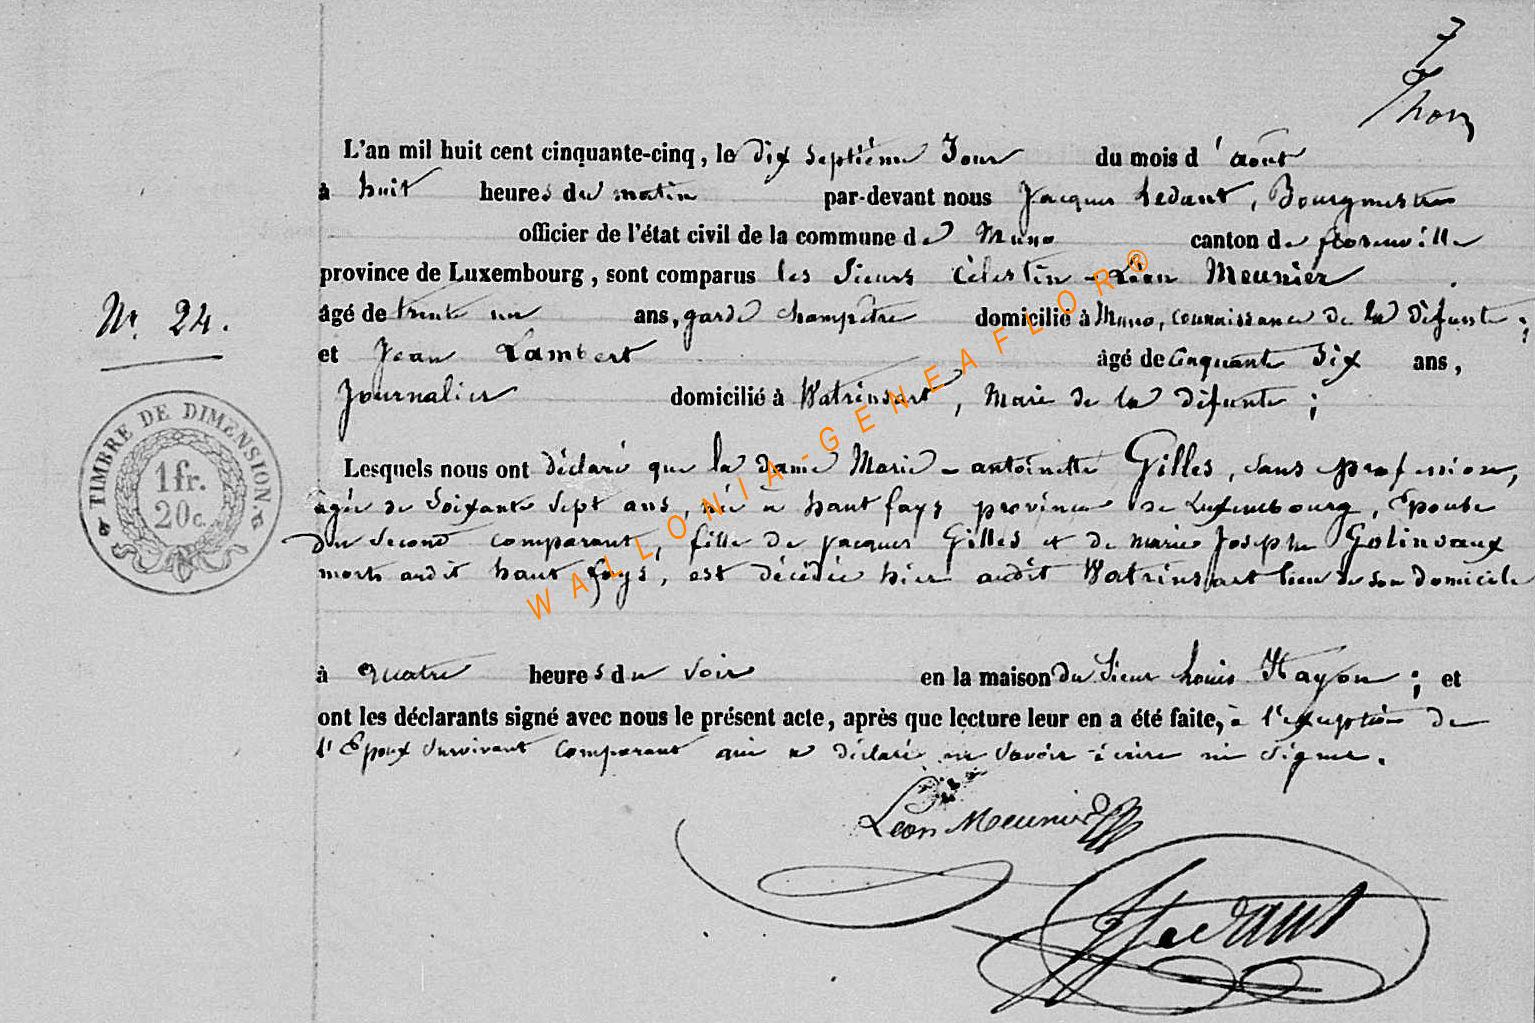 7
Thon
L'an mil huit cent cinquante-cinq, le dix septième Jour du mois d'août
à huit heures du matin par-devant nous Jacques Ledant, Bourgmestre
officier de l'état civil de la commune de Muno canton de florenville
province de Luxembourg, sont comparus les Sieurs Célestin-Léon Meunier
âgé de trente un ans, garde champêtre domicilié à Muno, connaissance de la défunte;
et Jean Lambert âgé de cinquante Six ans,
Journalier domicilié à Watrinsart, Mari de la défunte;
Nr. 24.
TIMBRE DE DIMENSION.
1fr.
20c.
Lesquels nous ont déclaré que la dame Marie-antoinette Gilles, sans profession,
âgée de Soixante Sept ans, née à haut fays province de Luxembourg, Epouse
du Second comparant, fille de Jacques Gilles et de Marie Josephe Golinvaux
morts audit haut fays, est décédée hier audit Watrinsart lieu de son domicile
à quatre heures du soir en la maison du Sieur Louis Hayon; et
ont les déclarants signé avec nous le présent acte, après que lecture leur en a été faite, à l'exception de
l'Epoux Survivant Comparant qui a déclaré ne Savoir écrire ni Signer.
Léon Meunier
JLedant
WALLONIA-GENEAFLOR®